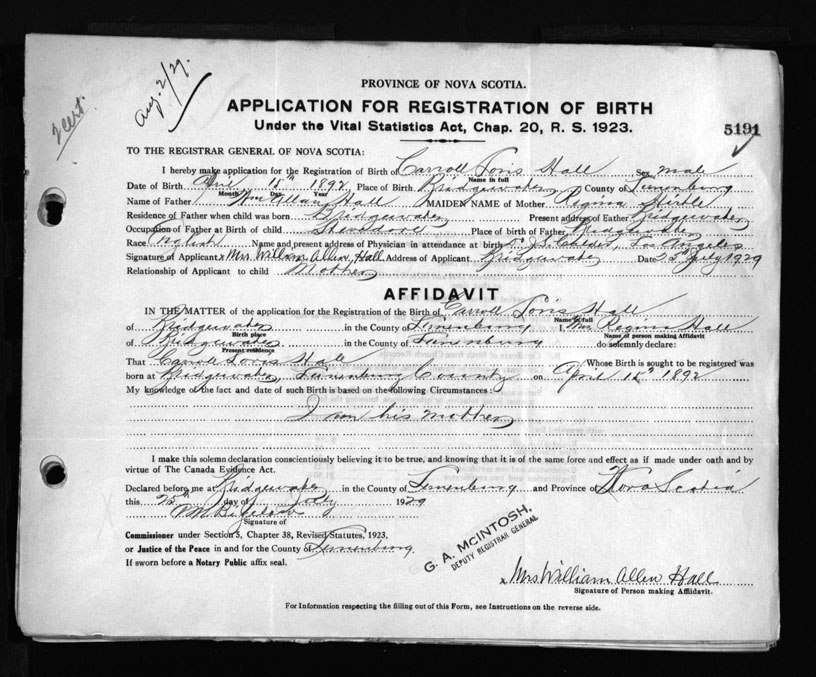 Aug. 2/29.
1 cert.
PROVINCE OF NOVA SCOTIA.
APPLICATION FOR REGISTRATION OF BIRTH
Under the Vital Statistics Act, Chap. 20, R. S. 1923.
5191
TO THE REGISTRAR GENERAL OF NOVA SCOTIA:
I hereby make application for the Registration of Birth of Carroll Hall Sex Male
Name in full
Date of Birth April 1892 Place of Birth Bridgewater County of Lunenburg
Month Day Year
Name of Father Wm Allan Hall MAIDEN NAME of Mother Regina
Residence of Father when child was born Bridgewater Present address of Father Bridgewater
Occupation of Father at Birth of child Stevedore Place of birth of Father Bridgewater
Race English Name and present address of Physician in attendance at birth Los Angeles
Signature of Applicant x Mrs William Allen Hall Address of Applicant Bridgewater Date 25th July 1929
Relationship of Applicant to child Mother
AFFIDAVIT
IN THE MATTER of the application for the Registration of the Birth of Carroll Hall
Name in full
of Bridgewater in the County of Lunenburg I, Mrs Regina Hall
Birth place Name of person making Affidavit
of Bridgewater in the County of Lunenburg do solemnly declare:
Present residence
That Carroll Hall Whose Birth is sought to be registered was
born at Bridgewater, Lunenburg County on April 1892
My knowledge of the fact and date of such Birth is based on the following Circumstances:
I am his mother
I make this solemn declaration conscientiously believing it to be true, and knowing that it is of the same force and effect as if made under oath and by
virtue of The Canada Evidence Act.
Declared before me at Bridgewater in the County of Lunenburg and Province of Nova Scotia
this 25th day of July 1929
Signature of
Commissioner under Section 5, Chapter 38, Revised Statutes, 1923,
or Justice of the Peace in and for the County of Lunenburg
If sworn before a Notary Public affix seal.
G. A. McINTOSH,
DEPUTY REGISTRAR GENERAL
x Mrs William Allen Hall
Signature of Person making Affidavit.
For Information respecting the filling out of this Form, see Instructions on the reverse side.